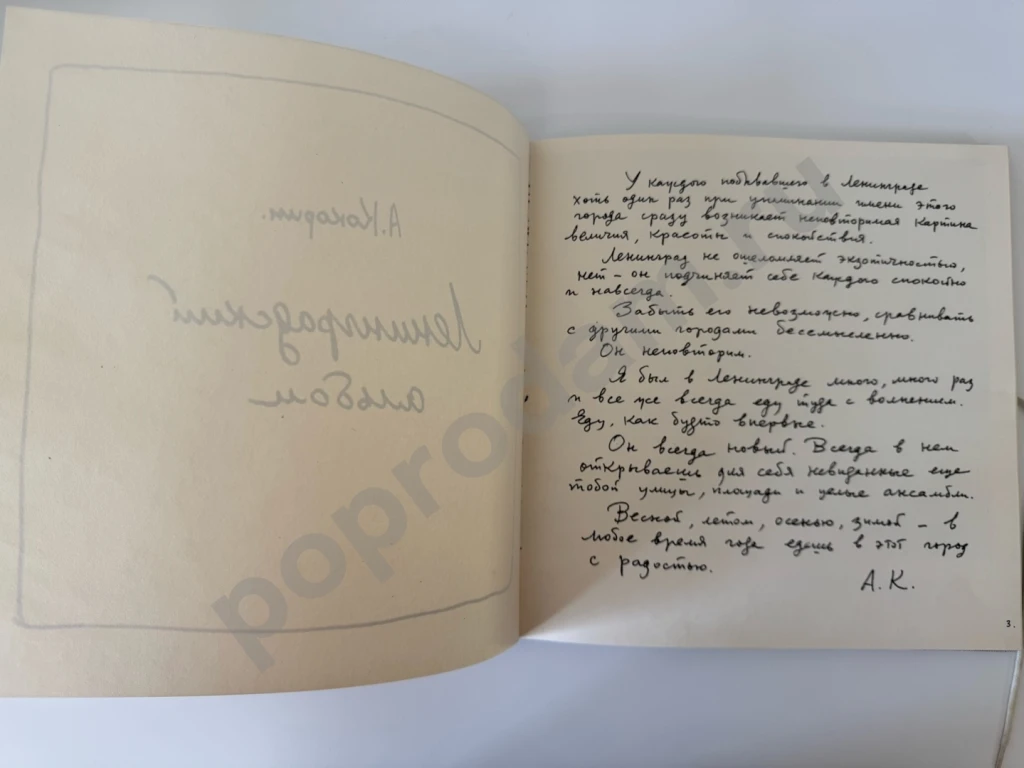 А. Кокорин.
Ленинградский
альбом
У каждого побывавшего в Ленинграде
хоть один раз при упоминании имени этого
города сразу возникает неповторимая картина
величия, красоты и спокойствия.
Ленинград не ошеломляет экзотичностью,
нет – он подчиняет себе каждого спокойно
и навсегда.
Забыть его невозможно, сравнивать
с другими городами бессмысленно.
Он неповторим.
Я был в Ленинграде много, много раз
и все же всегда еду туда с волнением.
Еду, как будто впервые.
Он всегда новый. Всегда в нем
открываешь для себя невиданные еще
тобой улицы, площади и целые ансамбли.
Весной, летом, осенью, зимой – в
любое время года едешь в этот город
с радостью.
А.К.
3.
poprodam.ru